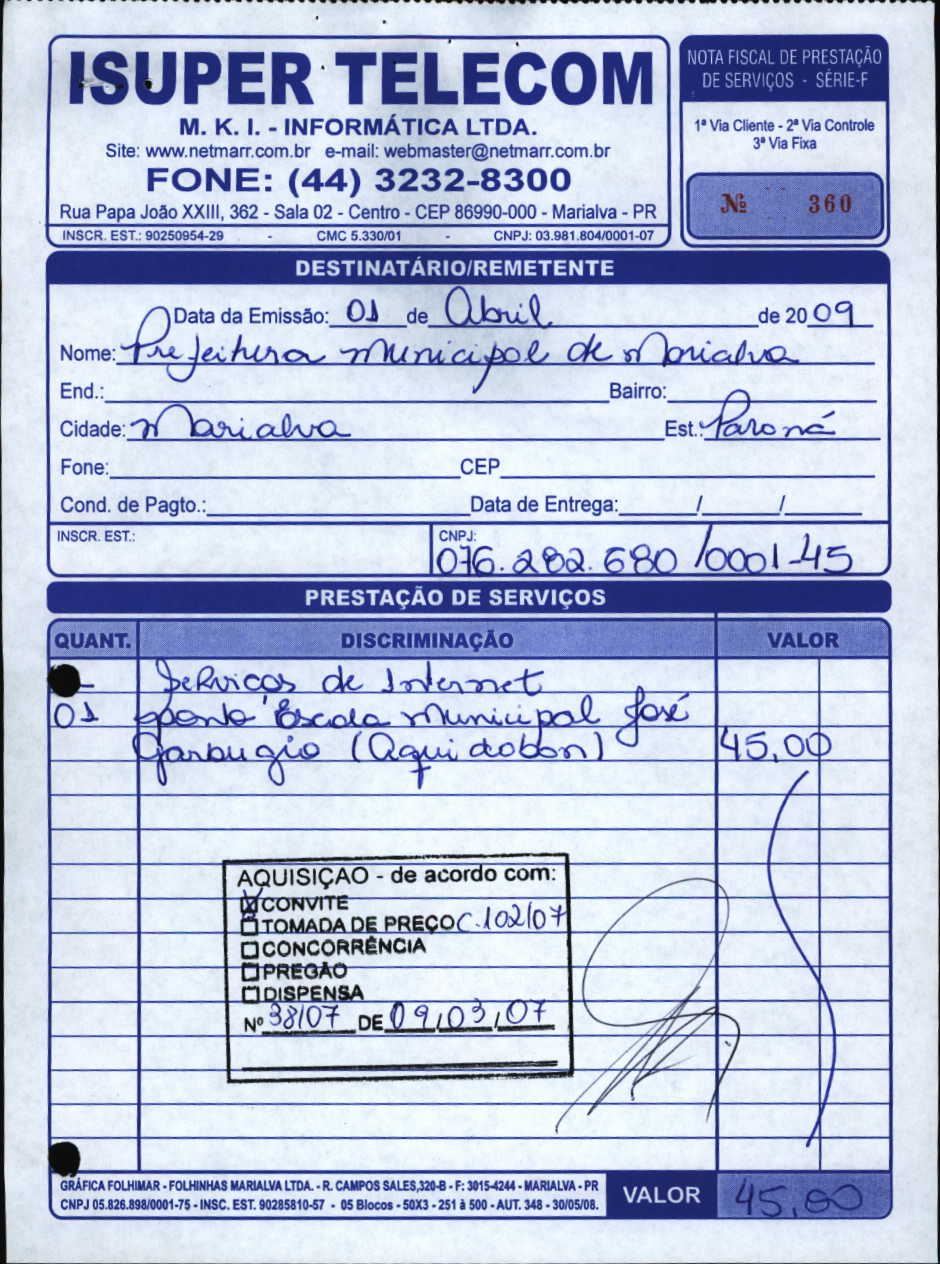 ISUPER TELECOM
M. K. I. - INFORMÁTICA LTDA.
Site: www.netmarr.com.br e-mail: webmaster@netmarr.com.br
FONE: (44) 3232-8300
Rua Papa João XXIII, 362 - Sala 02 - Centro - CEP 86990-000 - Marialva - PR
INSCR. EST.: 90250954-29 - CMC 5.330/01 - CNPJ: 03.981.804/0001-07
NOTA FISCAL DE PRESTAÇÃO
DE SERVIÇOS - SÉRIE-F
1ª Via Cliente - 2ª Via Controle
3ª Via Fixa
Nº 360
DESTINATÁRIO/REMETENTE
Data da Emissão: 01 de Abril de 2009
Nome: Prefeitura municipal de marialva
End.: Bairro:
Cidade: marialva Est.: Paraná
Fone: CEP
Cond. de Pagto.: Data de Entrega: / /
INSCR. EST.: CNPJ:
076.282.680/0001-45
PRESTAÇÃO DE SERVIÇOS
QUANT. DISCRIMINAÇÃO VALOR
Serviços de Internet
01 ponto Escola municipal José
Garbugio (Aquidaban) 45,00
AQUISIÇAO - de acordo com:
CONVITE
TOMADA DE PREÇO C.102/07
CONCORRÊNCIA
PREGÃO
DISPENSA
Nº 38/07 DE 09/03/07
GRÁFICA FOLHIMAR - FOLHINHAS MARIALVA LTDA. - R. CAMPOS SALES,320-B - F: 3015-4244 - MARIALVA - PR
CNPJ 05.826.898/0001-75 - INSC. EST. 90285810-57 - 05 Blocos - 50X3 - 251 à 500 - AUT. 348 - 30/05/08.
VALOR 45,00